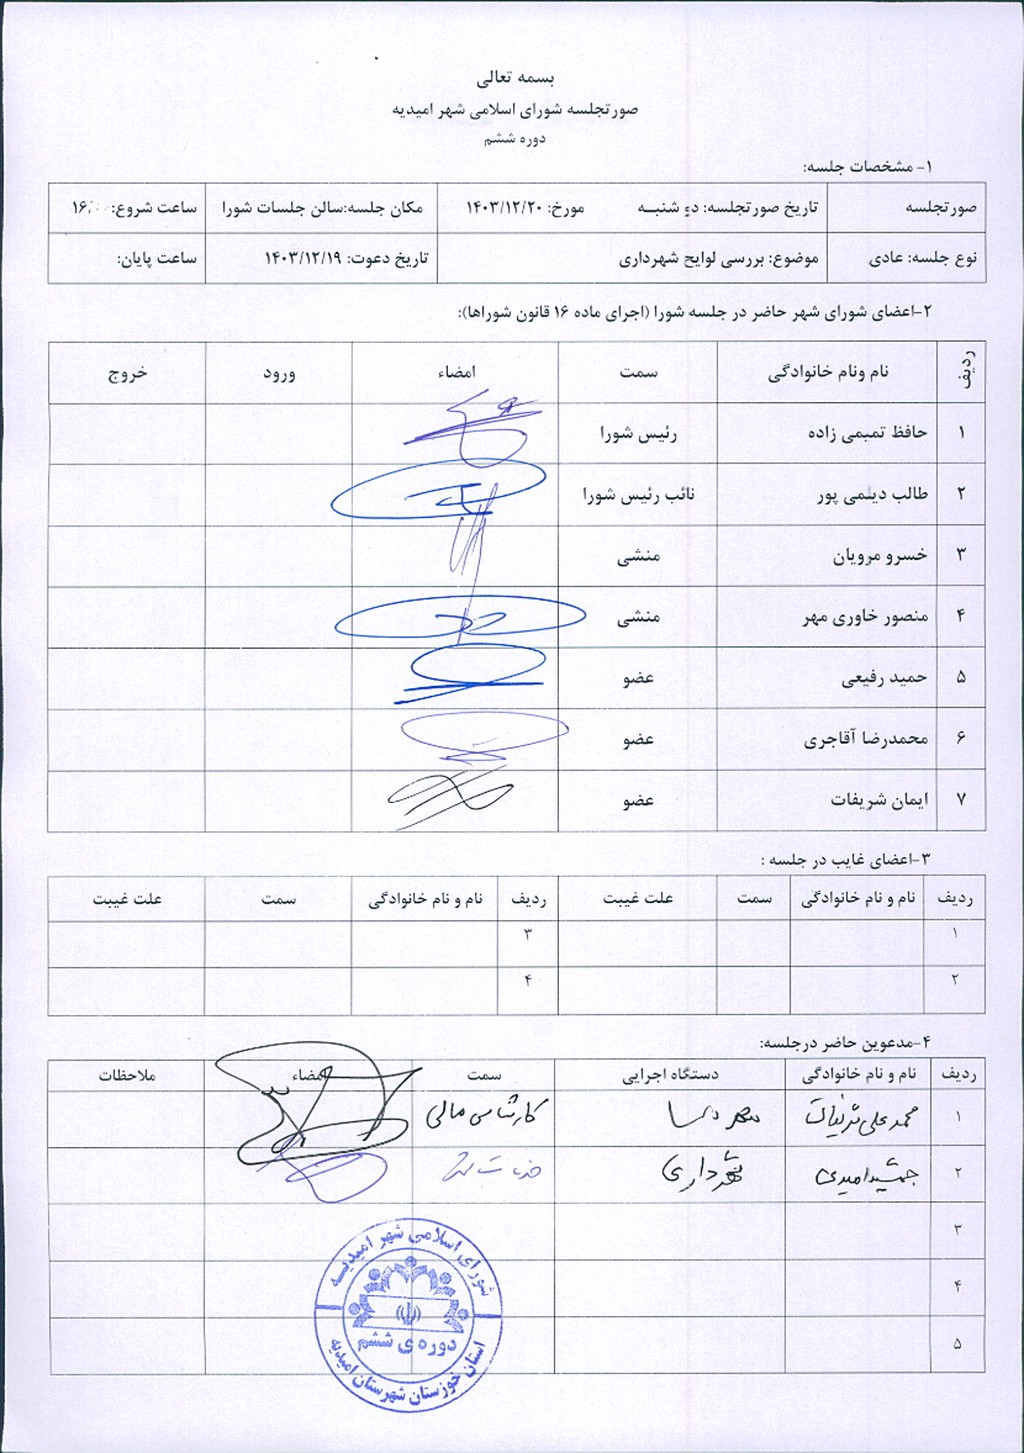 بسمه تعالی
صورتجلسه شورای اسلامی شهر امیدیه
دوره ششم
۱- مشخصات جلسه:
صورتجلسه تاریخ صورتجلسه: دو شنبه مورخ: ۱۴۰۳/۱۲/۲۰ مکان جلسه:سالن جلسات شورا ساعت شروع: ۱۶
نوع جلسه: عادی موضوع: بررسی لوایح شهرداری تاریخ دعوت: ۱۴۰۳/۱۲/۱۹ ساعت پایان:
۲-اعضای شورای شهر حاضر در جلسه شورا (اجرای ماده ۱۶ قانون شوراها):
ردیف نام ونام خانوادگی سمت امضاء ورود خروج
۱ حافظ تمیمی زاده رئیس شورا
۲ طالب دیلمی پور نائب رئیس شورا
۳ خسرو مرویان منشی
۴ منصور خاوری مهر منشی
۵ حمید رفیعی عضو
۶ محمدرضا آقاجری عضو
۷ ایمان شریفات عضو
۳-اعضای غایب در جلسه :
ردیف نام و نام خانوادگی سمت علت غیبت ردیف نام و نام خانوادگی سمت علت غیبت
۱ ۳
۲ ۴
۴-مدعوین حاضر درجلسه:
ردیف نام و نام خانوادگی دستگاه اجرایی سمت امضاء ملاحظات
۱ محمد علی کارشناس مالی
۲ جمشید امیدی شهرداری
۳
۴
۵
شورای اسلامی شهر امیدیه
دوره ی ششم
استان خوزستان شهرستان امیدیه